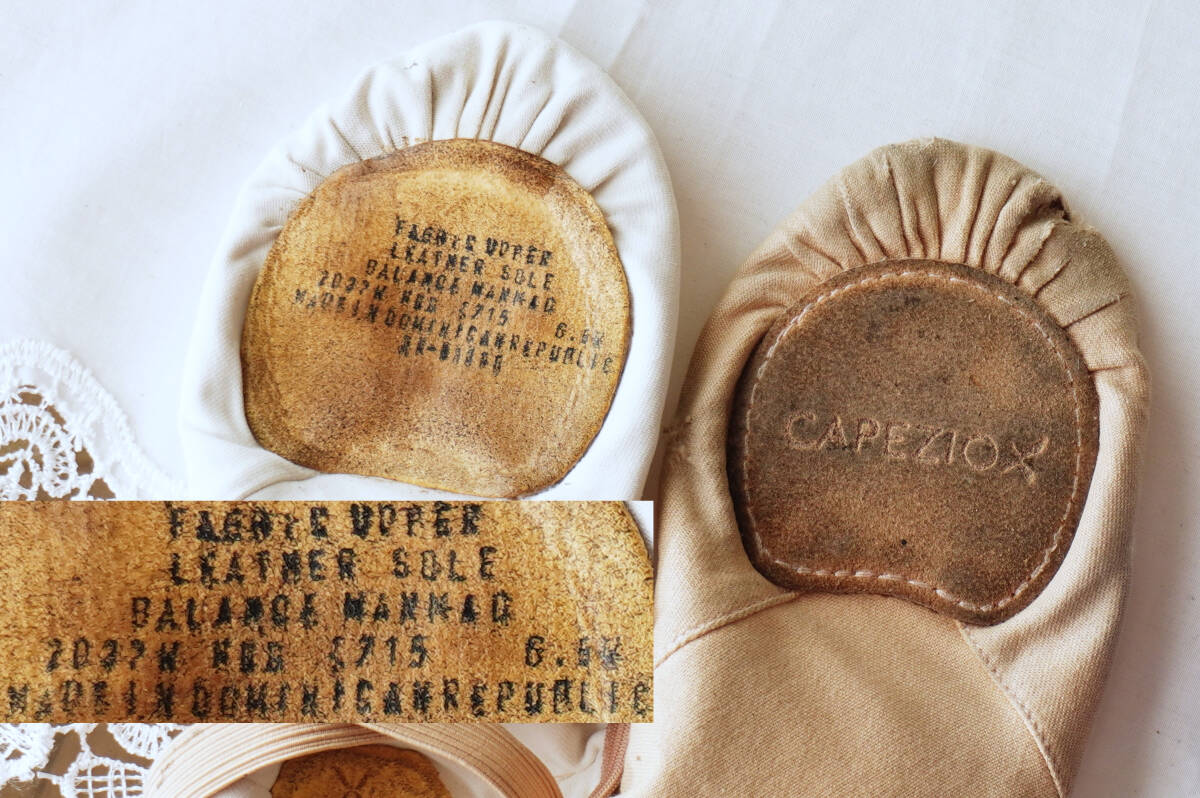 FABRIC UPPER
LEATHER SOLE
BALANCE MANMAD
2037W NBR S715 6.5W
MADE IN DOMINICANREPUBLIC
CAPEZIO
FABRIC UPPER
LEATHER SOLE
BALANCE MANMAD
2037W NBR S715 6.5W
MADE IN DOMINICANREPUBLIC